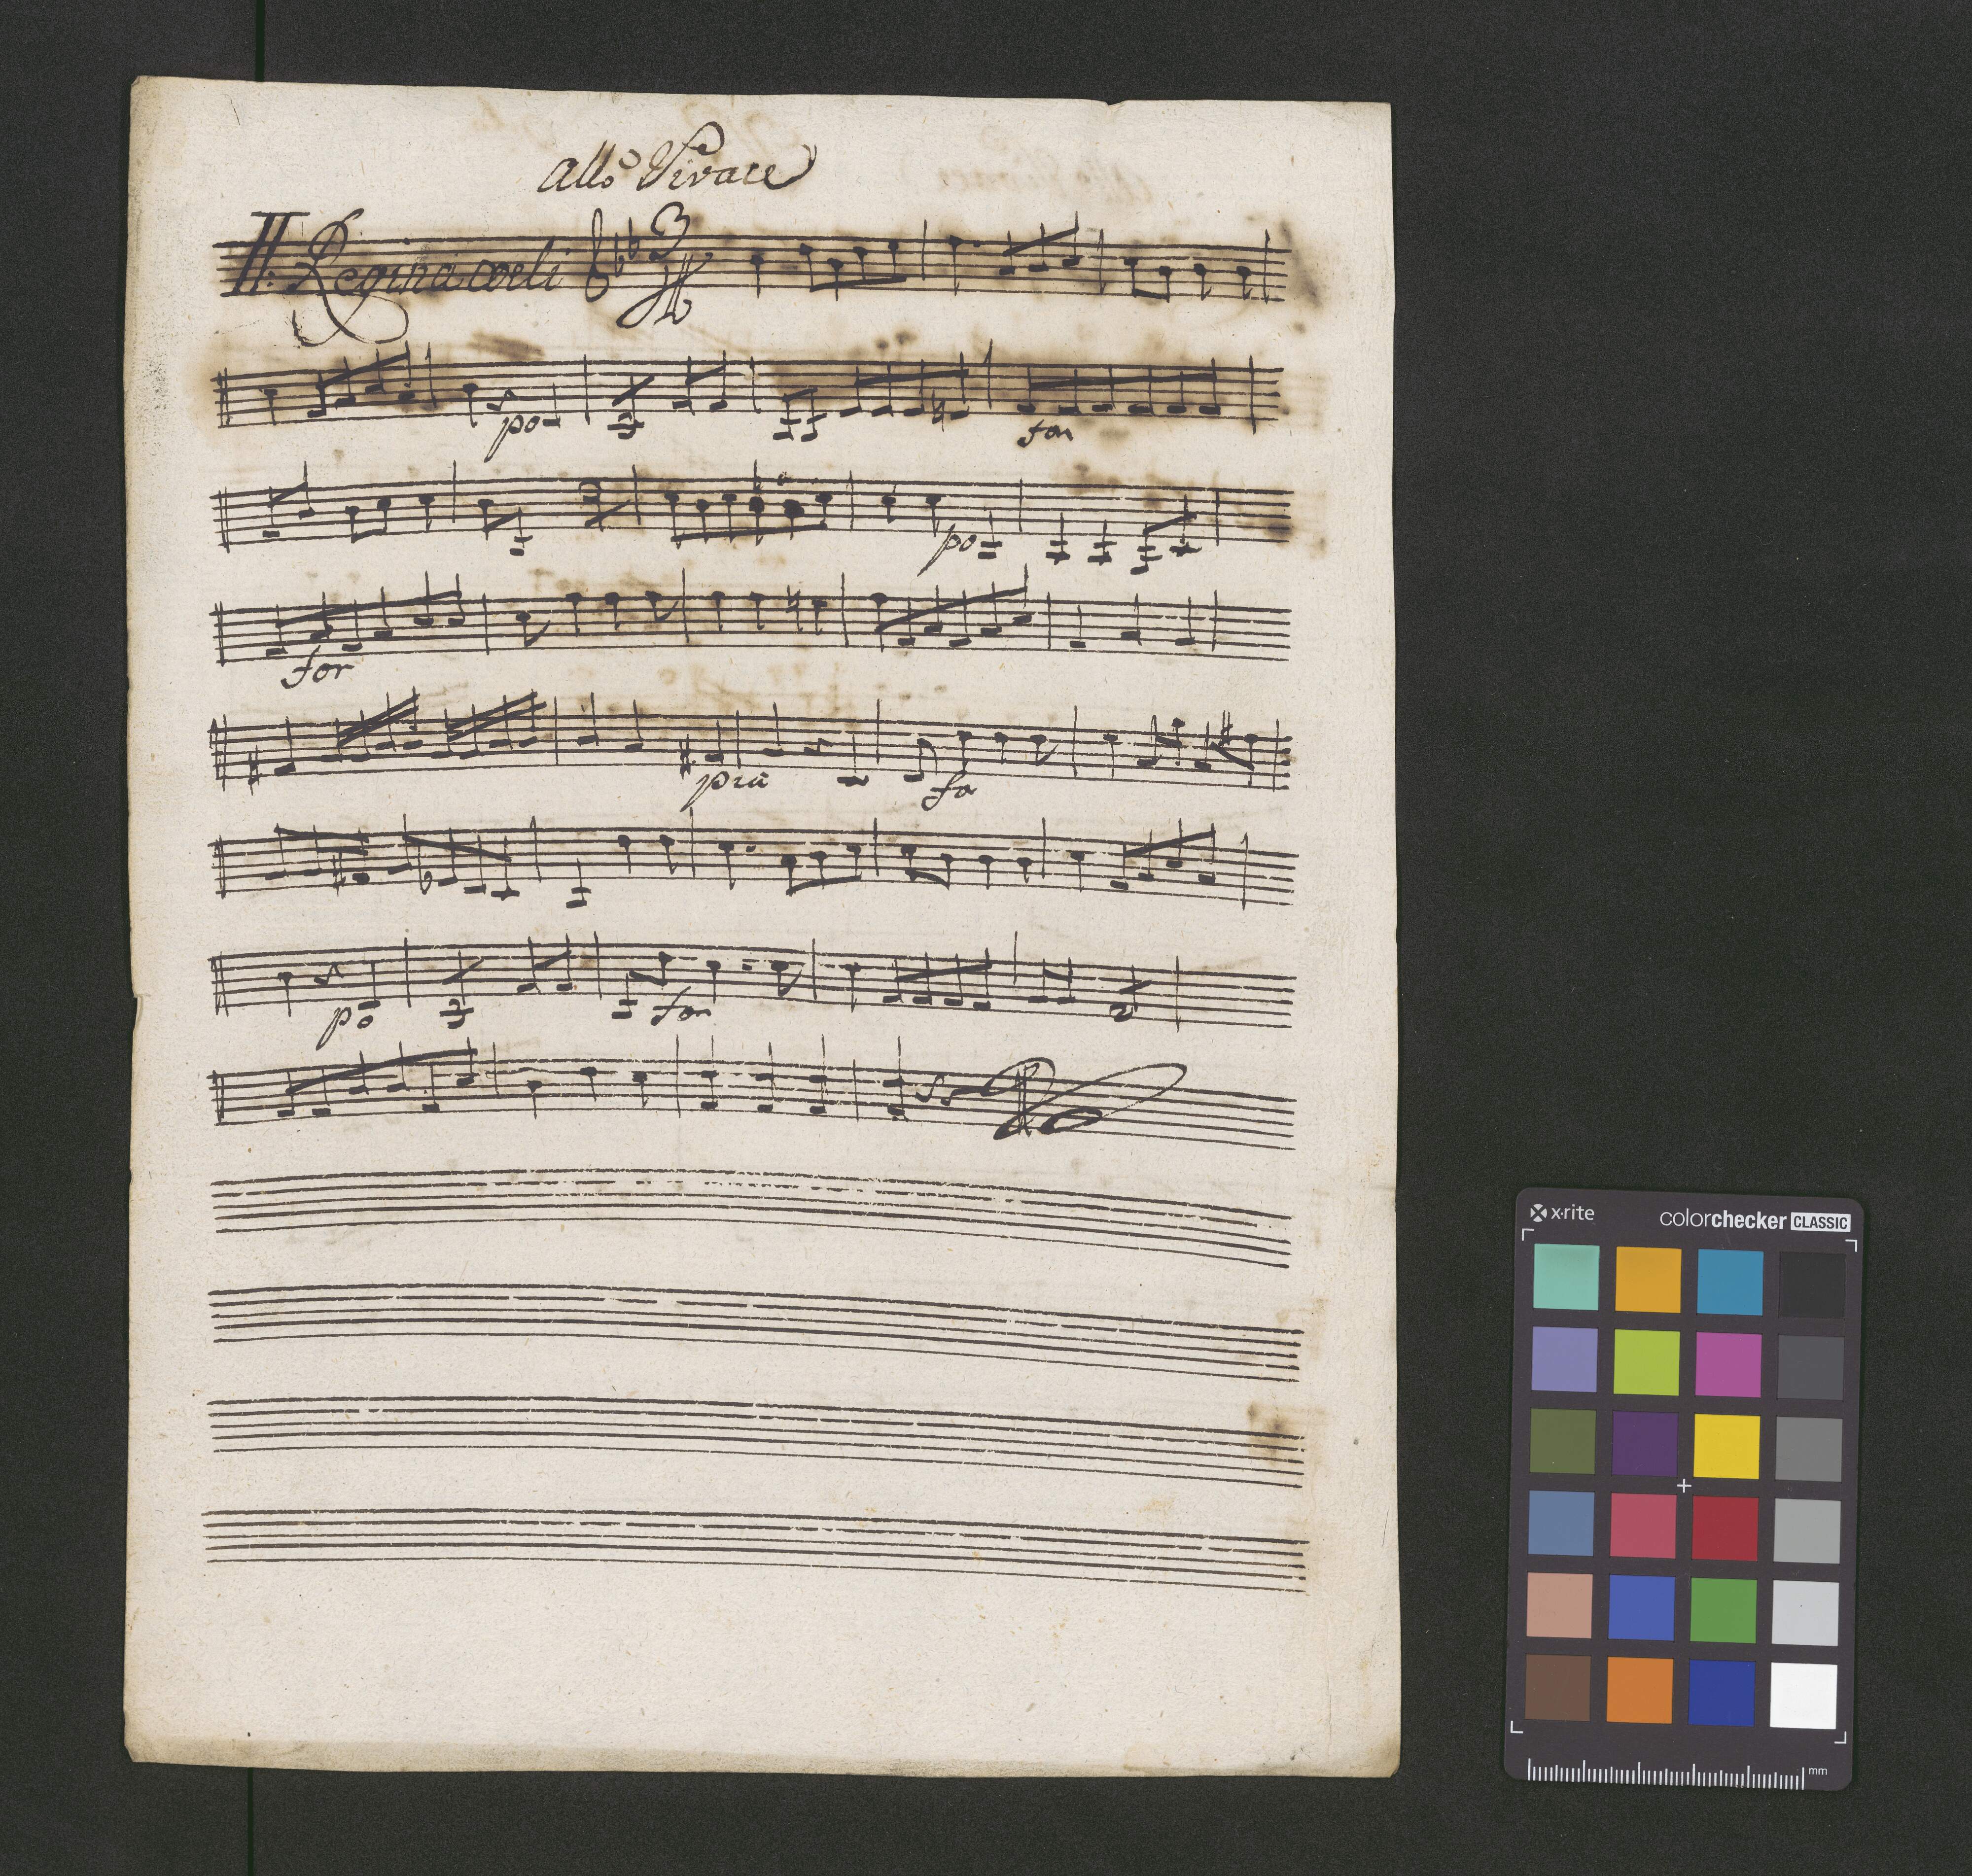 allo Vivace
II: Regina cœli 3
po for
po
for
pia fo
po for
x·rite colorchecker CLASSIC
mm